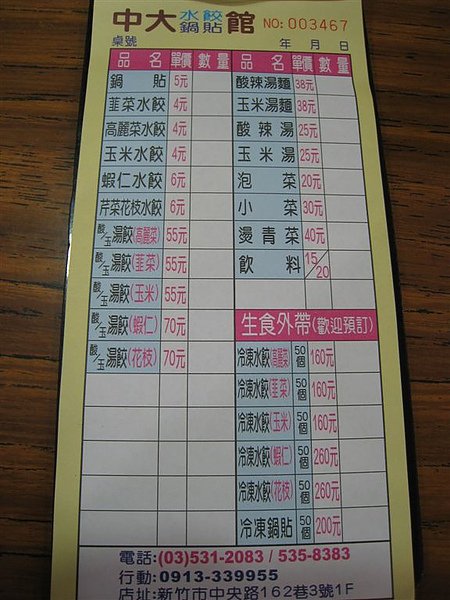 中大水餃鍋貼館 NO: 003467
桌號 年 月 日
品名 單價 數量 品名 單價 數量
鍋貼 5元 酸辣湯麵 38元
韮菜水餃 4元 玉米湯麵 38元
高麗菜水餃 4元 酸辣湯 25元
玉米水餃 4元 玉米湯 25元
蝦仁水餃 6元 泡菜 20元
芹菜花枝水餃 6元 小菜 30元
酸/玉湯餃(高麗菜) 55元 燙青菜 40元
酸/玉湯餃(韮菜) 55元 飲料 15/20
酸/玉湯餃(玉米) 55元
酸/玉湯餃(蝦仁) 70元 生食外帶(歡迎預訂)
酸/玉湯餃(花枝) 70元 冷凍水餃(高麗菜) 50個 160元
冷凍水餃(韮菜) 50個 160元
冷凍水餃(玉米) 50個 160元
冷凍水餃(蝦仁) 50個 260元
冷凍水餃(花枝) 50個 260元
冷凍鍋貼 50個 200元
電話:(03)531-2083 / 535-8383
行動:0913-339955
店址:新竹市中央路162巷3號1F